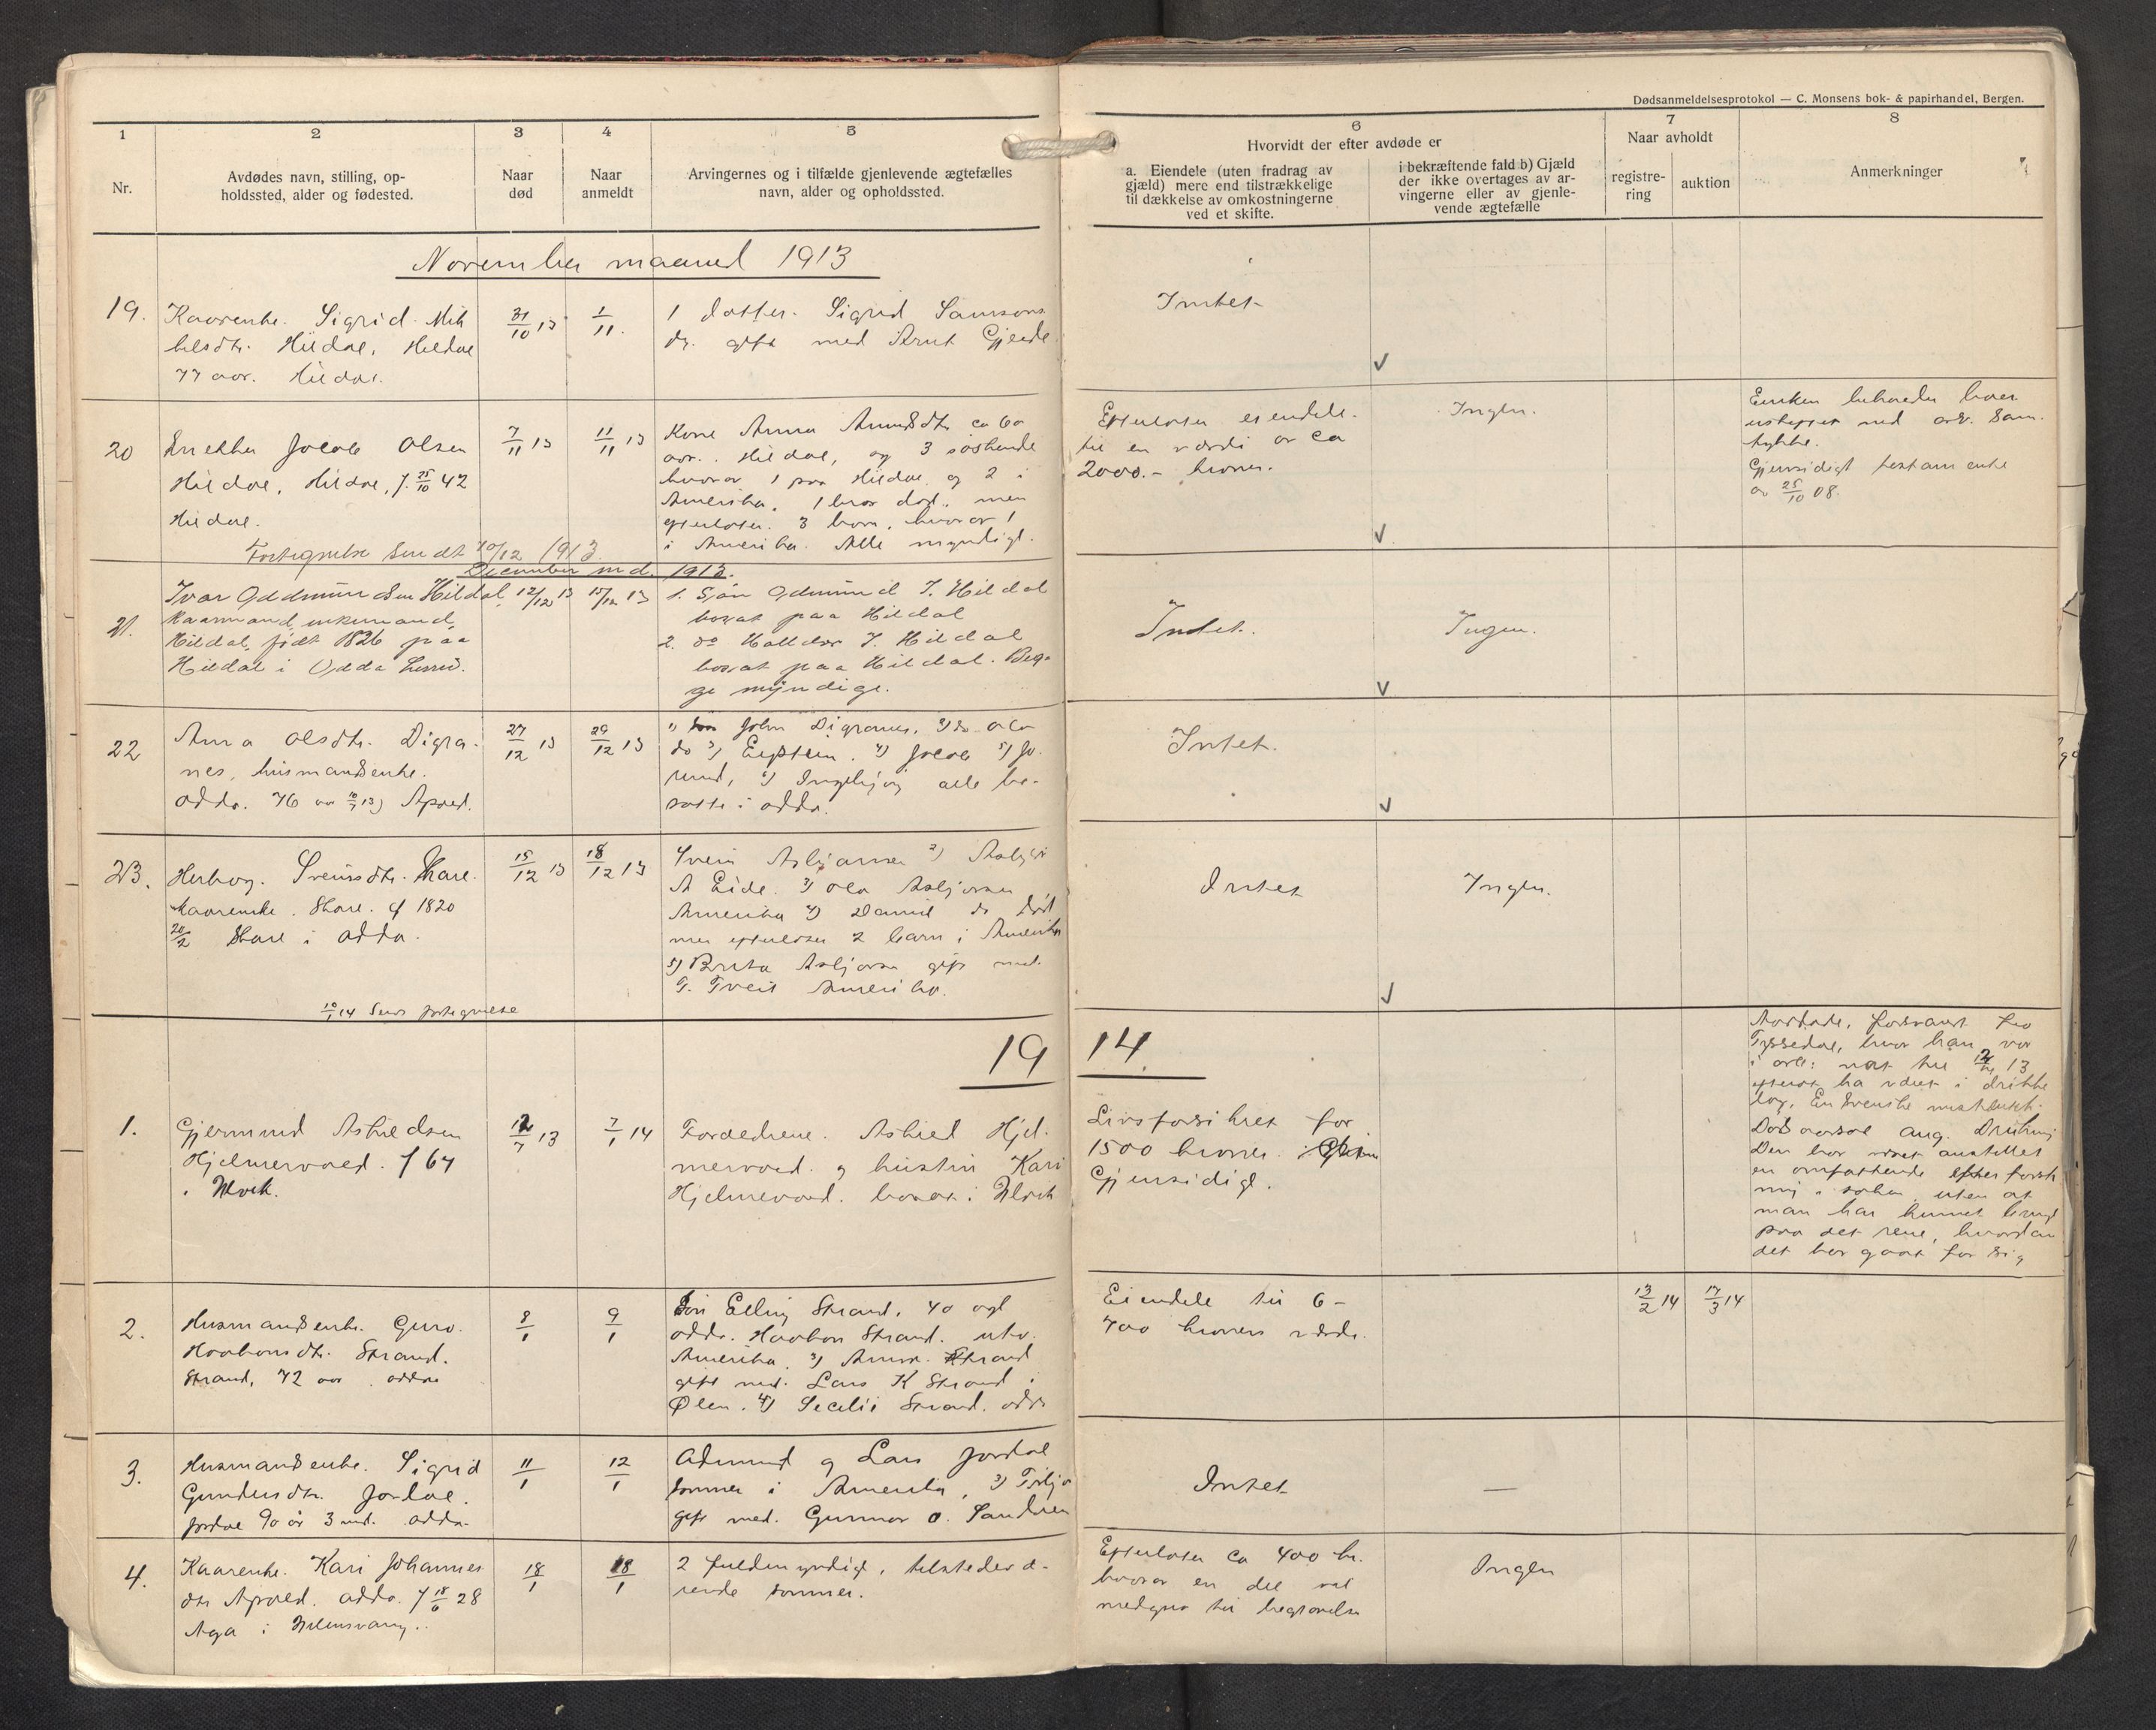 Dødsanmeldelsesprotokol — C. Monsens bok- & papirhandel, Bergen.
1 2 3 4 5 6 7 8
Nr.
Avdødes navn, stilling, op-
holdssted, alder og fødested.
Naar
død
Naar
anmeldt
Arvingernes og i tilfælde gjenlevende ægtefælles
navn, alder og opholdssted.
Hvorvidt der efter avdøde er
a. Eiendele (uten fradrag av
gjæld) mere end tilstrækkelige
til dækkelse av omkostningerne
ved et skifte.
i bekræftende fald b) Gjæld
der ikke overtages av ar-
vingerne eller av gjenle-
vende ægtefælle
Naar avholdt
registre-
ring
auktion
Anmerkninger
November maaned 1913
19.
Kaarenke. Sigrid
Hildal, Hildal
77 aar. Hildal.
31/10 13
1/11.
1 datter. Sigrid Samsons
dr. gift med Arnt Gjerde
Intet
20
Jacob Olsen
Hildal, Hildal, f. 25/10 42
Hildal.
7/11 13
11/11 13
Kone Anna Amundsdtr. ca 60
aar. Hildal, og 3 søskende
hvorav 1 paa Hildal og 2 i
Amerika. 1 bror død, men
efterlater 3 barn, hvorav 1
i Amerika. Alle myndige.
Efterlater eiendele
til en værdi av ca
2000.- kroner.
Ingen.
Enken beholder boet
uskiftet med arv. Sam-
tykke.
Gjensidigt testamente
av 25/10 08.
Fortegnelse sendt 10/12 1913.
December md. 1913.
21.
Ivar Oddmundsen Hildal
Kaarmand, enkemand,
Hildal, født 1826 paa
Hildal i Odda herred.
12/12 13
15/12 13
1. Søn Odmund I. Hildal
bosat paa Hildal
2. do Halldor I. Hildal
bosat paa Hildal. Beg-
ge myndige.
Intet.
Ingen.
22
Anna Olsdtr. Digra-
nes, husmandsenke.
Odda. 76 aar Apold.
27/12 13
29/12 13
1) John Digranes, 2) do Ola
do 3) Eystein. 4) Jacob 5) Jo-
rund, 6) Ingebjørg alle bo-
satte i Odda.
Intet.
23.
Herborg Sveinsdtr. Skare.
Kaarenke. Skare. f 1820
20/2 Skare i Odda.
15/12 13
18/12 13
Svein Asbjørnsen 2)
A Eide. 3) Ola Asbjørnsen
Amerika 4) Daniel do død
men efterlater 2 barn i Amerika
5) Brita Asbjørnsen gift med
T. Tveit Amerika.
Intet
Ingen.
10/1 14 Sendt fortegnelse
19 14.
1.
Gjermund Askildsen
Hjelmervold. f 67
i Ulvik.
12/7 13
7/1 14
Forældrene. Askild Hjel-
mervold og hustru Kari
Hjelmevold. bosat i Ulvik
Livsforsikret for
1500 kroner i
Gjensidige.
forsvant fra
Tyssedal, hvor han var
i arb: nat til 13
efter at ha været i drikke-
lag. En Svenske mistænkt.
Dødsaarsak ang. Drukning
Der har været anstillet
en omfattende efterforsk-
ning i saken, uten at
man har kunnet bringe
paa det rene, hvordan
det har gaat for sig
2.
Husmandsenke. Guro.
Haakonsdtr. Strand.
Strand, 72 aar. Odda
8/1
9/1
Søn Elling Strand, 40 aar
Odda. Haakon Strand. utv.
Amerika. 3) Anna Strand
gift med. Lars K Strand i
Ølen. 4) Secelie Strand. Odda
Eiendele til 6-
700 kroners værdi.
13/2 14
17/3 14
3.
Husmandsenke. Sigrid
Gundersdtr. Jordal.
Jordal 90 år 3 md. Odda.
11/1
12/1
Odmund og Lars Jordal
sønner i Amerika, 3) Torbjør
gift med. Gunnar O. Sandven
Intet
—
4.
Kaarenke. Kari Johannes
dtr Apold. Odda. f 18/6 28
Aga i Ullensvang.
18/1
18/1
2 fuldmyndige, tilstedevæ-
rende sønner.
Efterlater ca 400 kr.
hvorav en del vil
medgaa til begravelse
Ingen